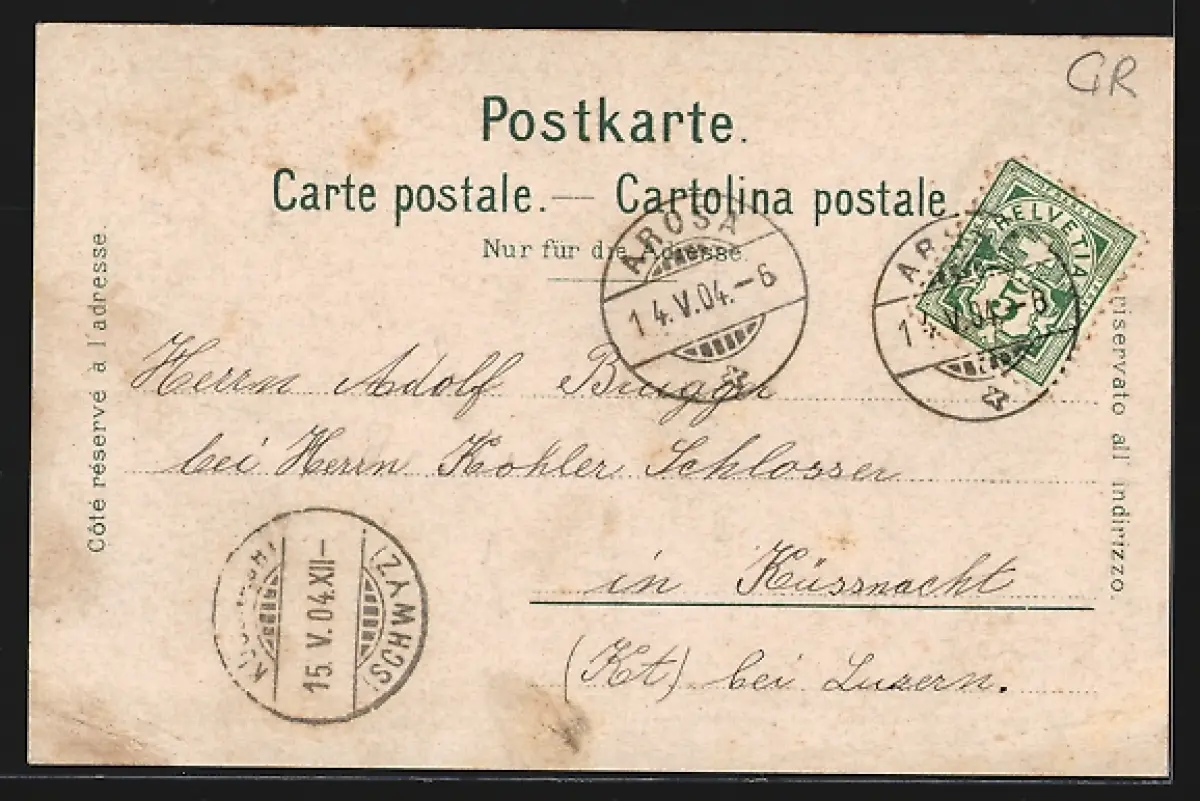 GR
Postkarte.
Carte postale. — Cartolina postale
Nur für die Adresse.
Côté réservé à l'adresse.
riservato all indirizzo.
HELVETIA
5
AROSA
14.V.04.-6
14.V.04.-6
Herrn Adolf
bei Herrn Kohler Schlosser
in Küssnacht
(Kt) bei Luzern.
15.V.04.XII-
(SCHWYZ)